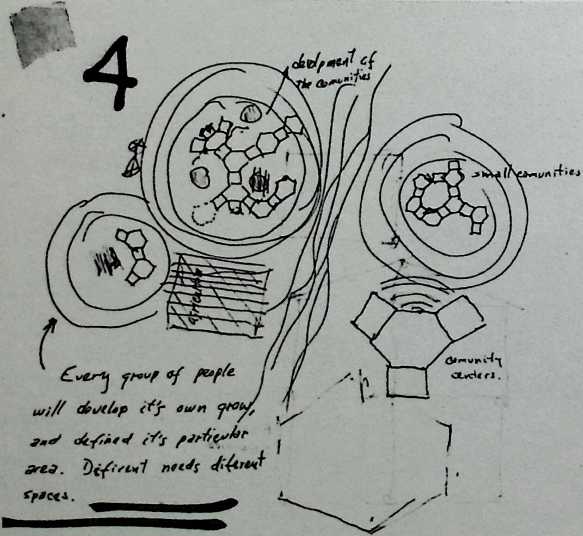 4
develpment of
the comunities
small comunities
comunity
centers.
Every group of people
will develop it's own grow,
and defined it's particular
area. Difirent needs diferent
spaces.